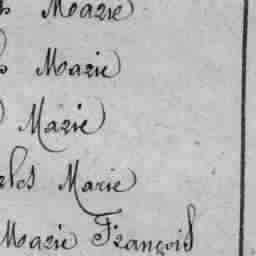 Marie
Marie
Marie
Marie
Marie François